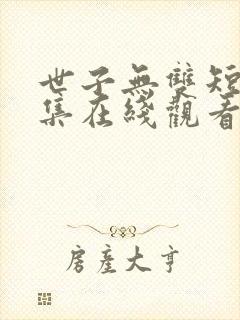 世子無雙短
集在綫觀看
房產大亨